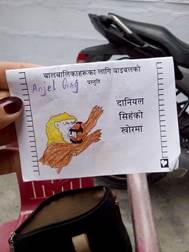 बालबालिकाहरूका लागि बाइबलको
प्रस्तुति
Anjel
दानियल
सिहंको
खोरमा